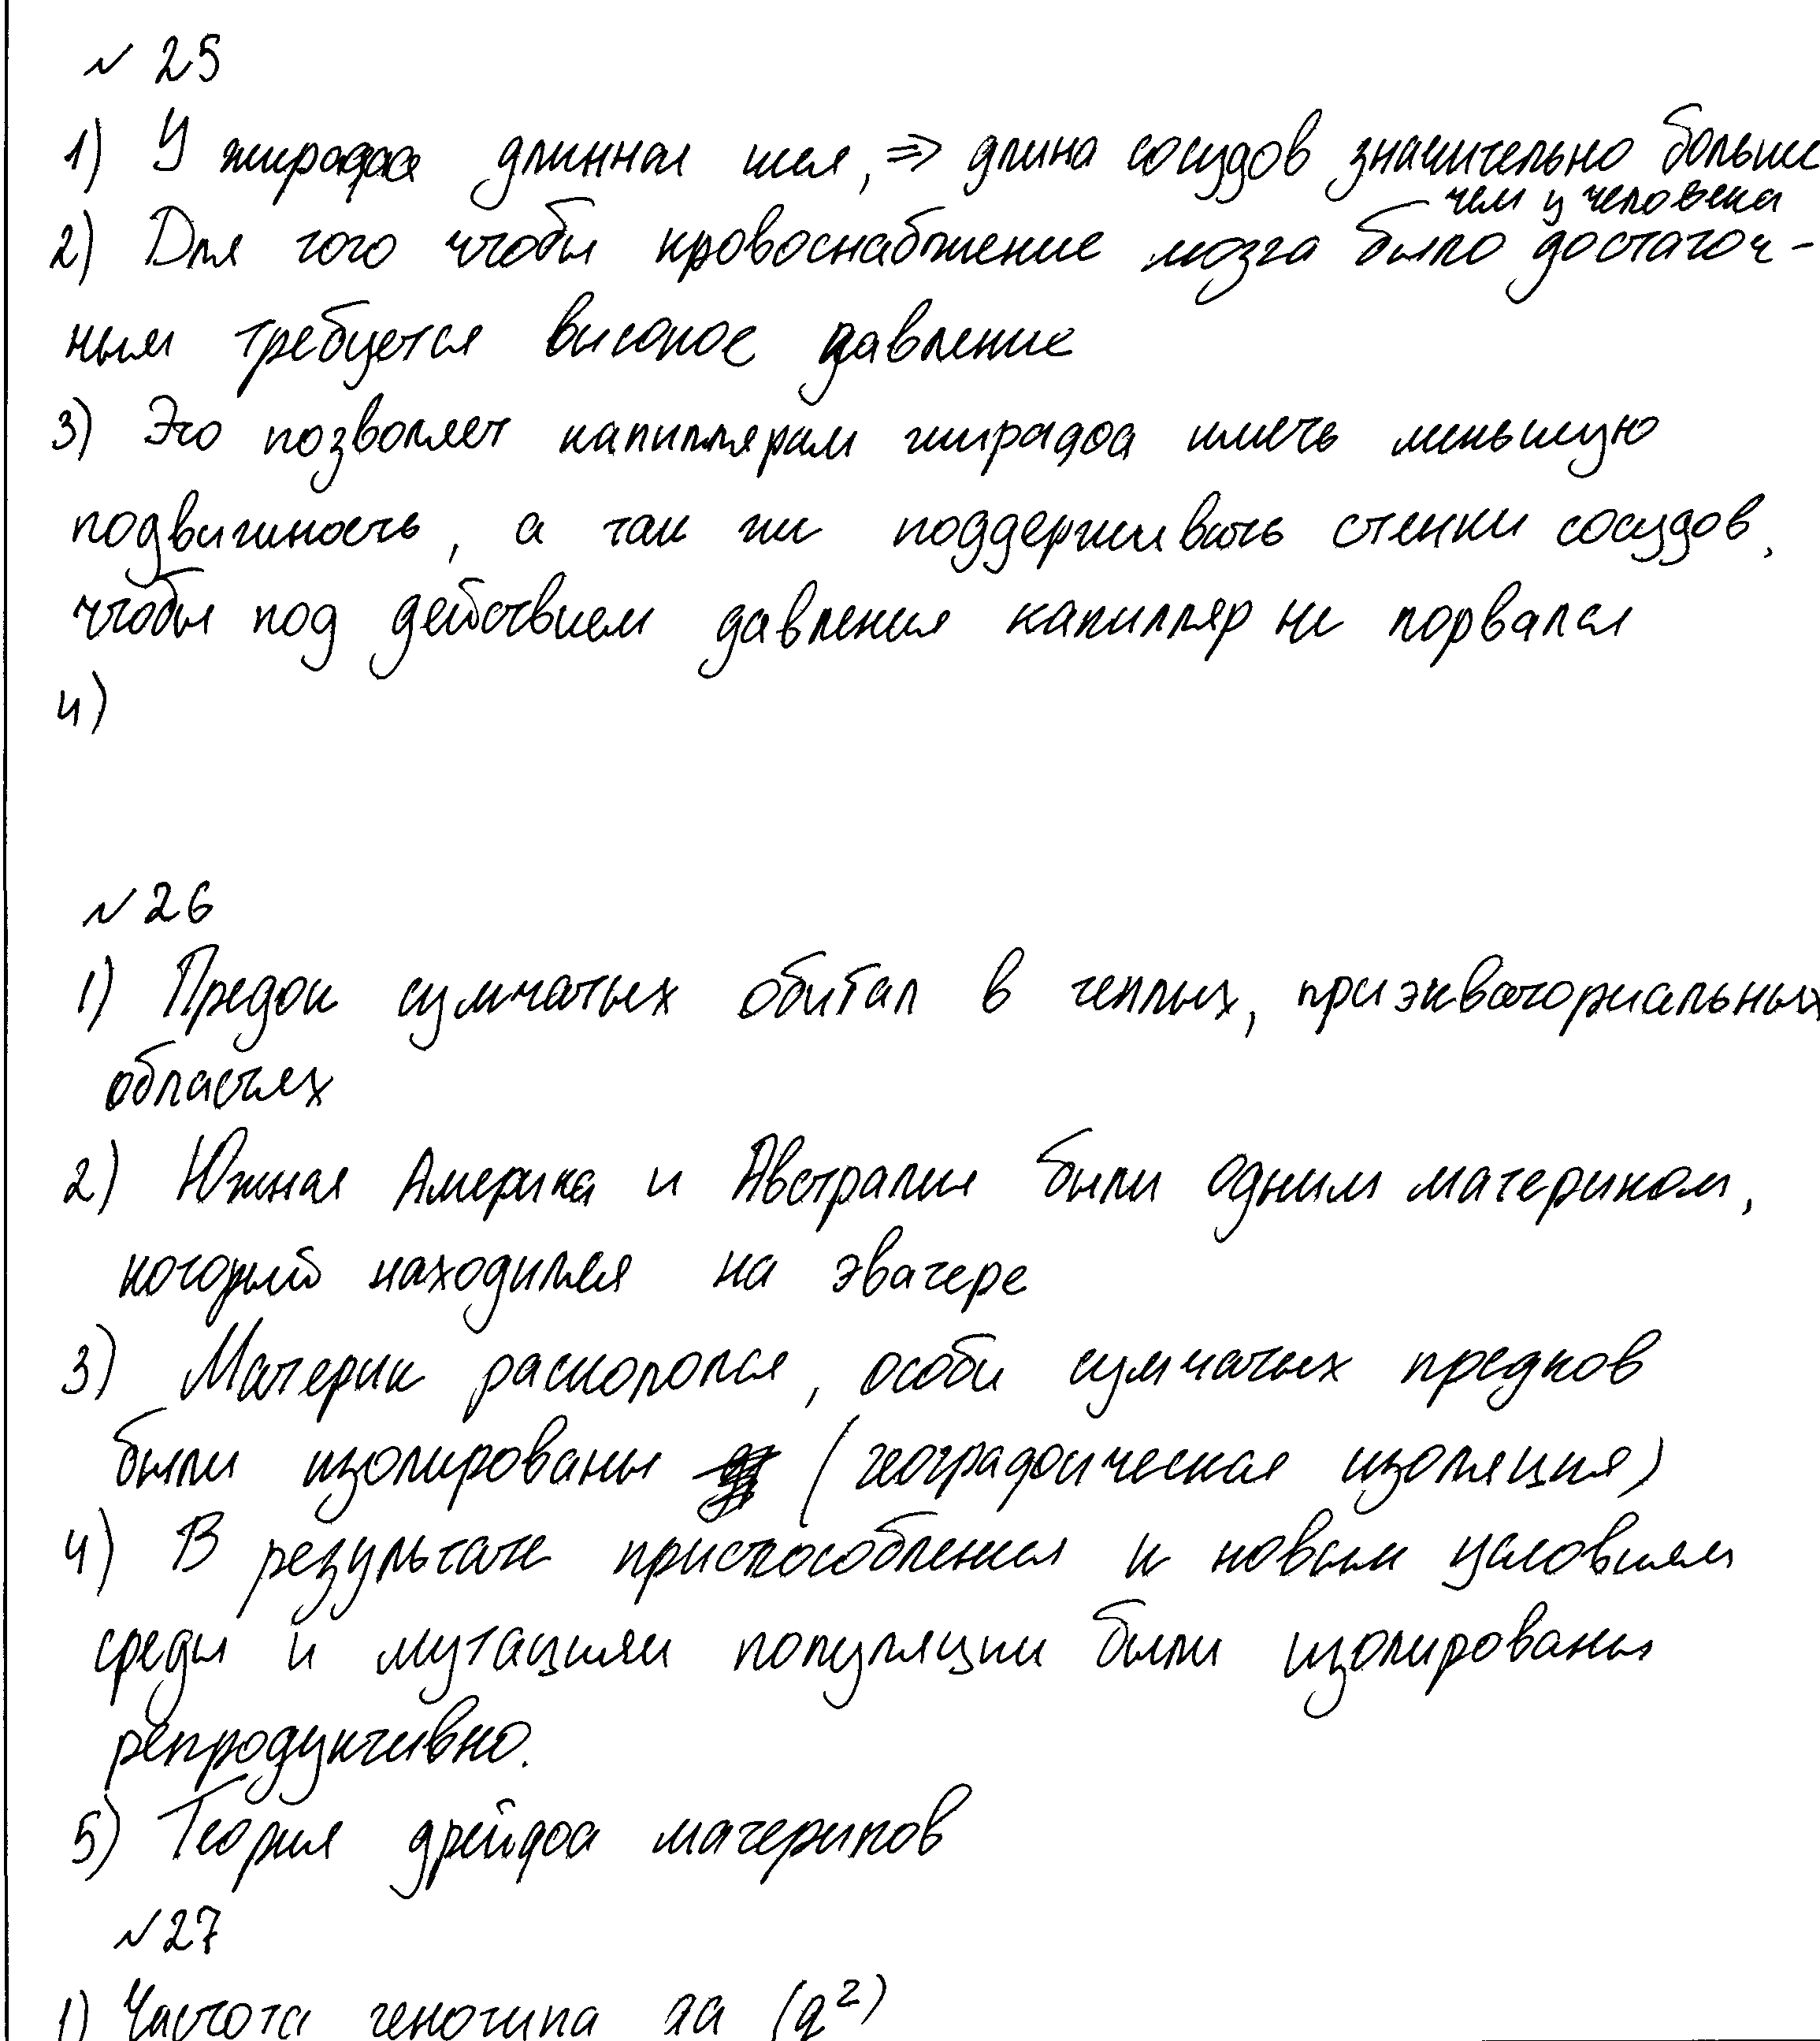 № 25
1) У жирафа длинная шея, => длина сосудов значительно больше
чем у человека
2) Для того чтобы кровоснабжение мозга было достаточ-
ным требуется высокое давление
3) Это позволяет капиллярам жирафа иметь меньшую
подвижность, а так же поддерживать стенки сосудов,
чтобы под действием давления капилляр не порвался
4)
№ 26
1) Предок сумчатых обитал в теплых, приэкваториальных
областях
2) Южная Америка и Австралия были одним материком,
который находился на эваторе
3) Материк раскололся, особи сумчатых предков
были изолированы (географическая изоляция)
4) В результате приспособления к новым условиям
среды и мутациям популяции были изолированы
репродуктивно.
5) Теория дрейфа материков
№ 27
1) Частота генотипа aa (q²)